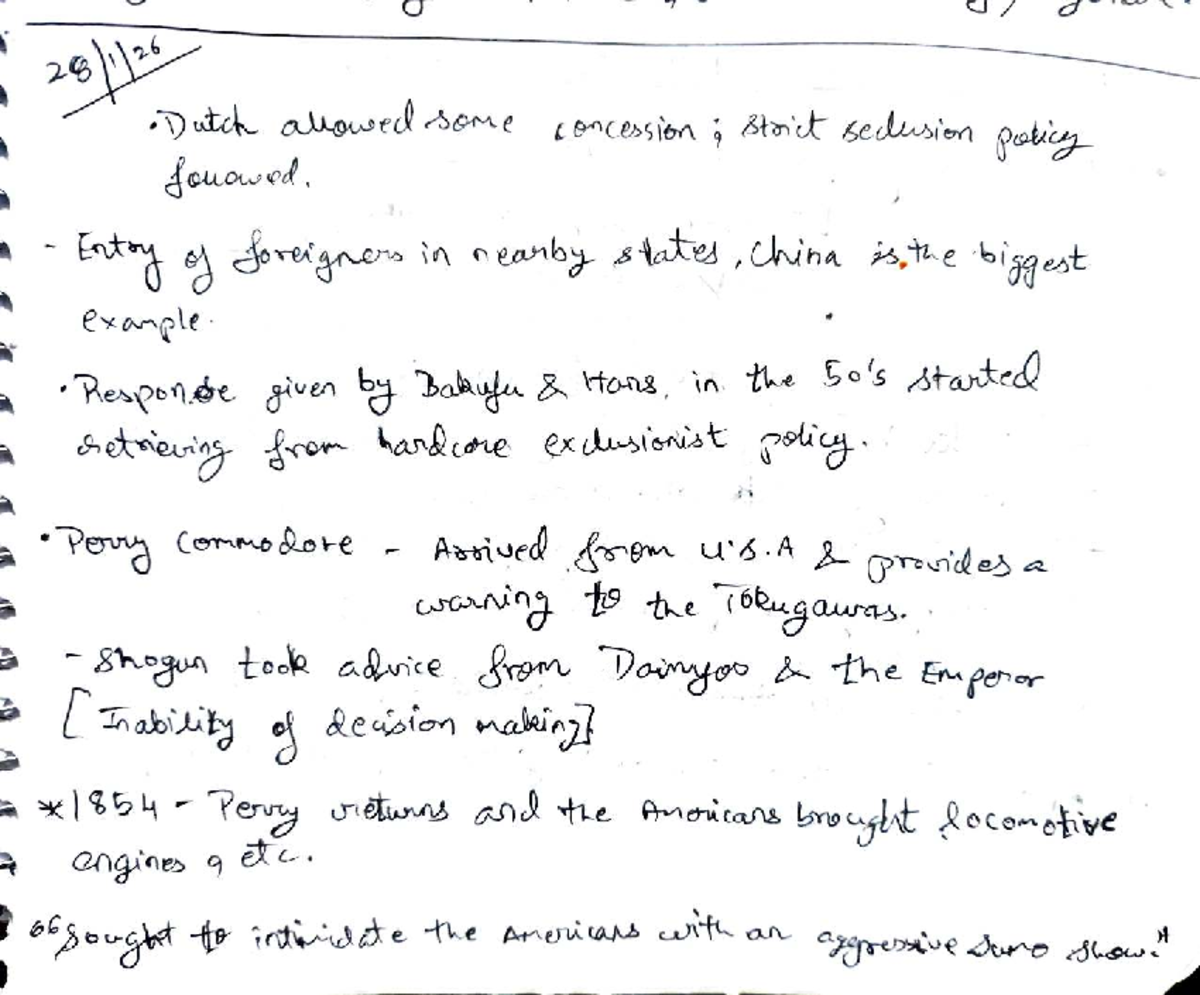 28/1/26
• Dutch allowed some concession ; strict seclusion policy
followed.
- Entry of foreigners in nearby states, China is the biggest
example.
• Response given by Bakufu & Hans, in the 50's started
retrieving from hardcore exclusionist policy.
• Perry Commodore - Arrived from U.S.A & provides a
warning to the Tokugawas.
- Shogun took advice from Daimyos & the Emperor
[Inability of decision making]
*1854 - Perry returns and the Americans brought locomotive
engines , etc.
"Sought to intimidate the Americans with an aggressive Sumo show."